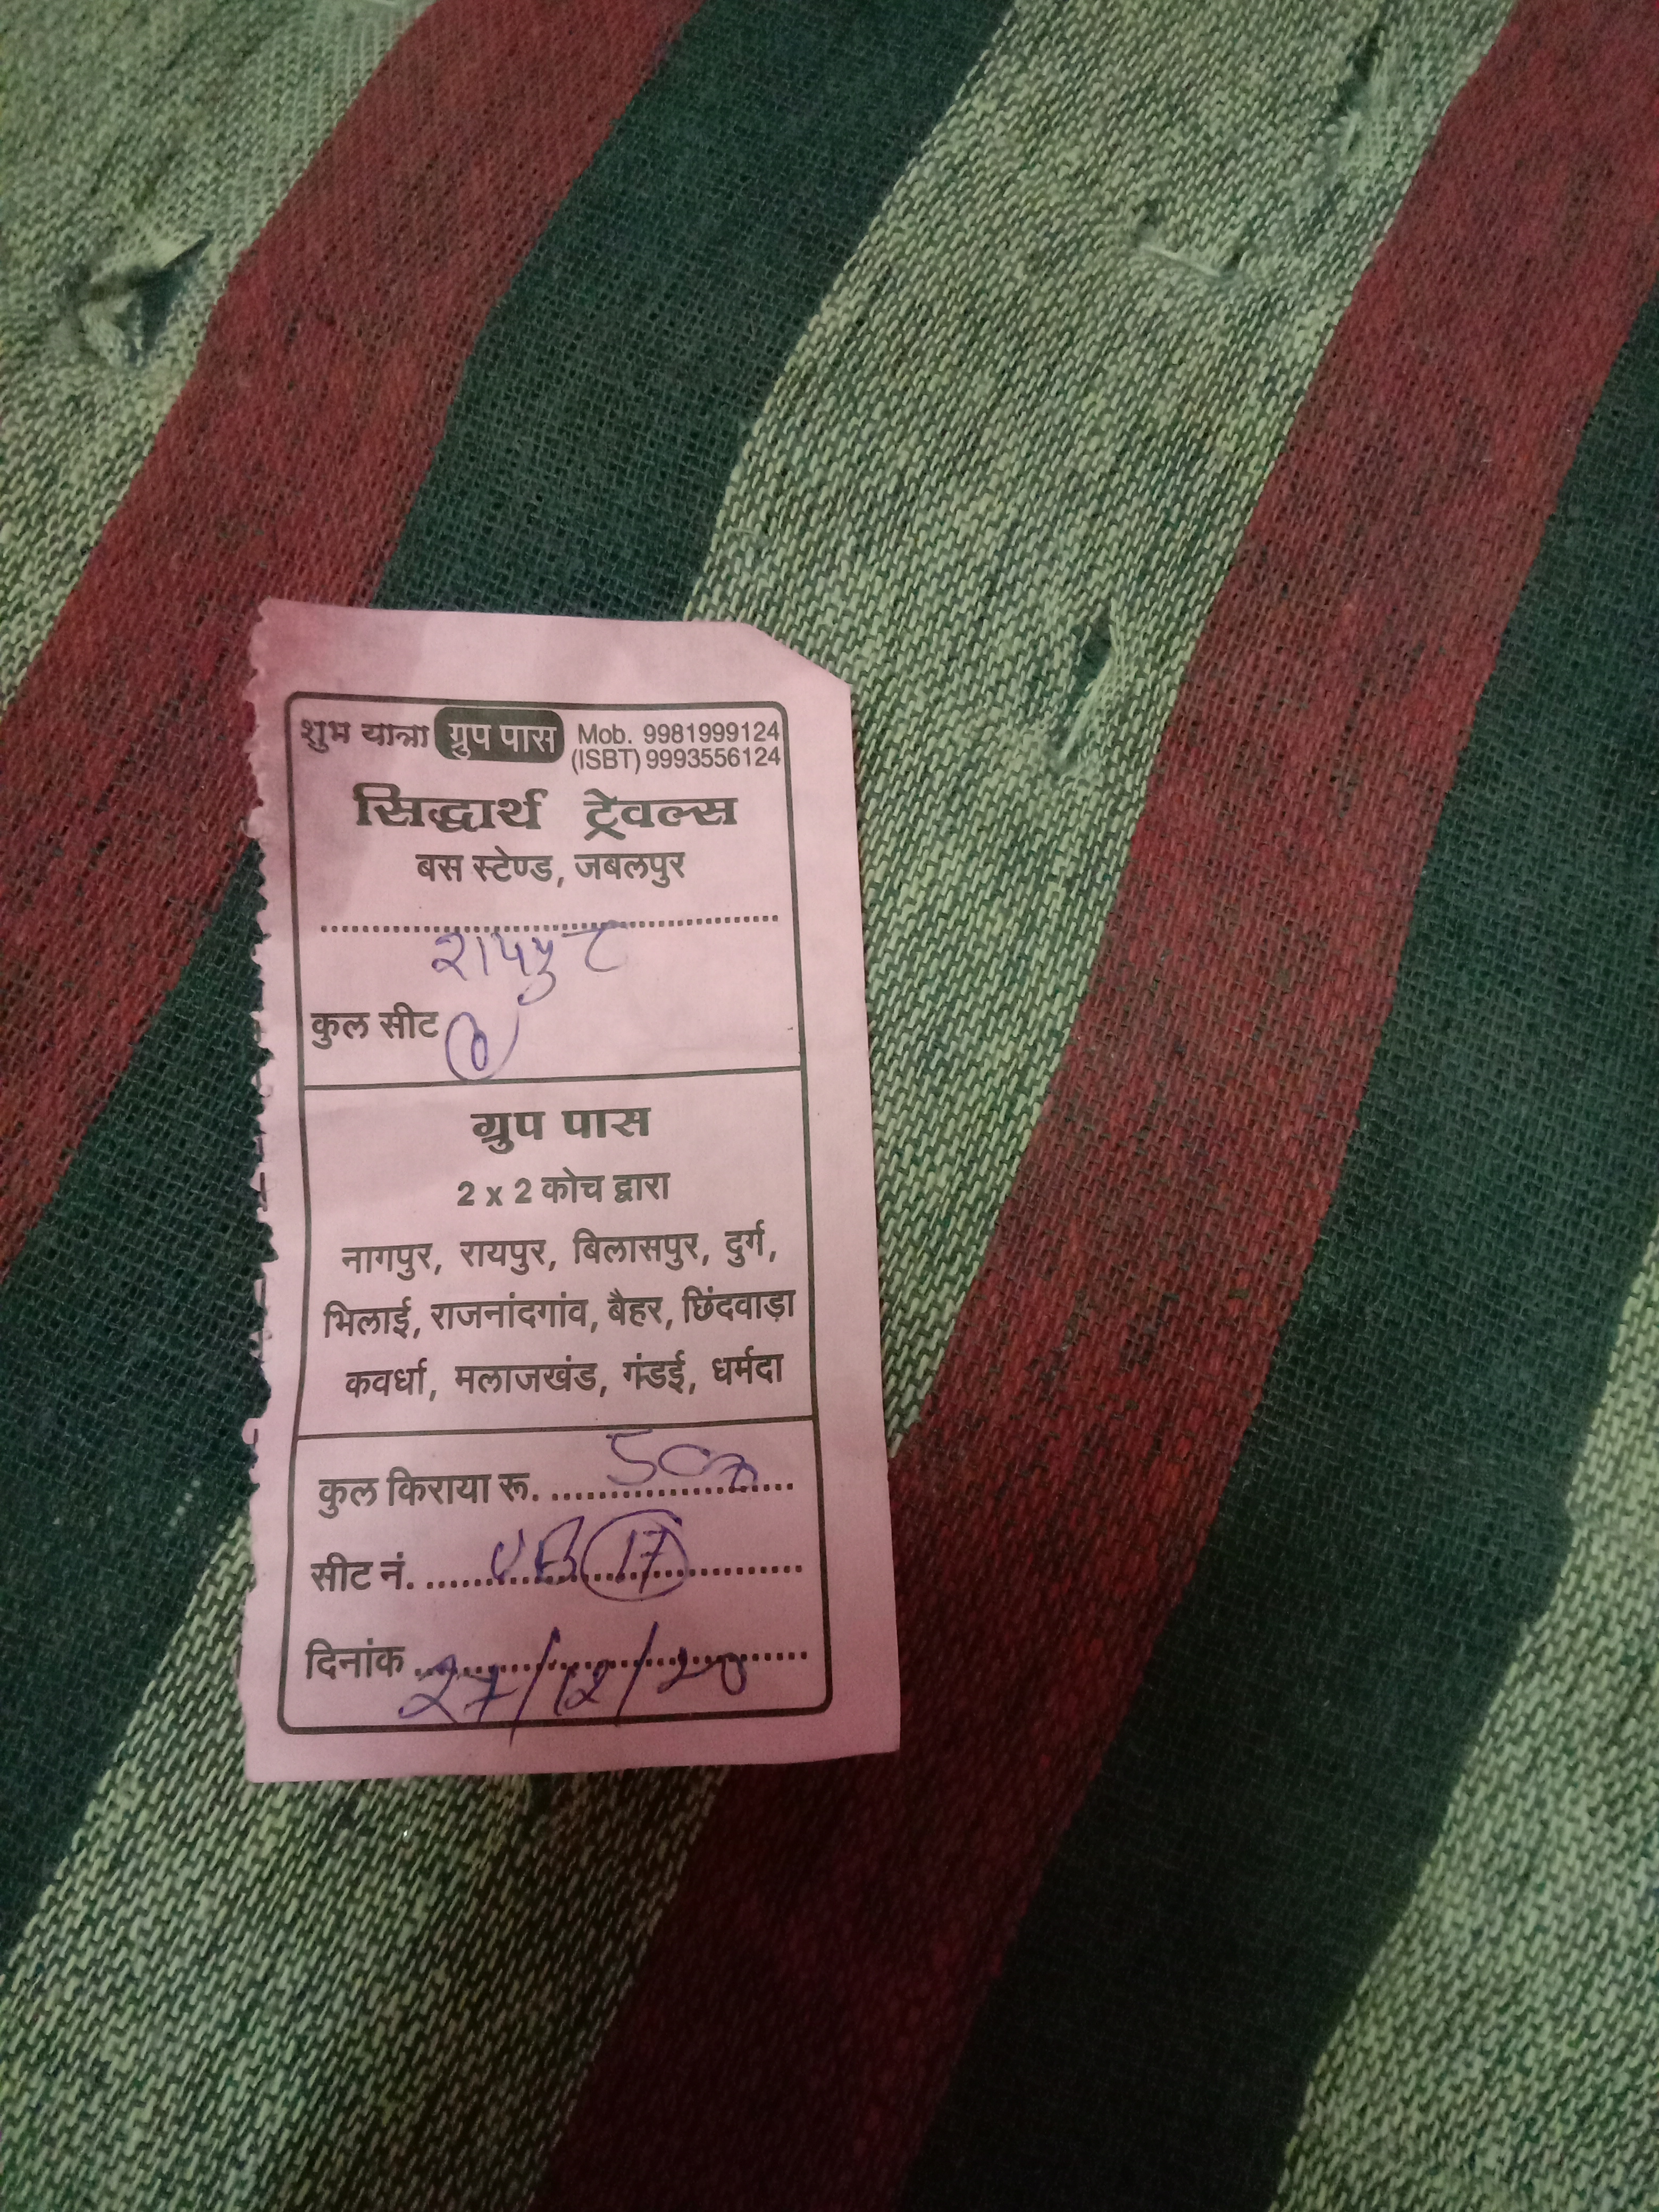 शुभ यात्रा ग्रुप पास Mob. 9981999124
(ISBT) 9993556124
सिद्धार्थ ट्रेवल्स
बस स्टेण्ड, जबलपुर
रायपुर
कुल सीट
ग्रुप पास
2 x 2 कोच द्वारा
नागपुर, रायपुर, बिलासपुर, दुर्ग,
भिलाई, राजनांदगांव, बैहर, छिंदवाड़ा
कवर्धा, मलाजखंड, गंडई, धर्मदा
कुल किराया रू. 500
सीट नं. UB 17
दिनांक 27/12/20